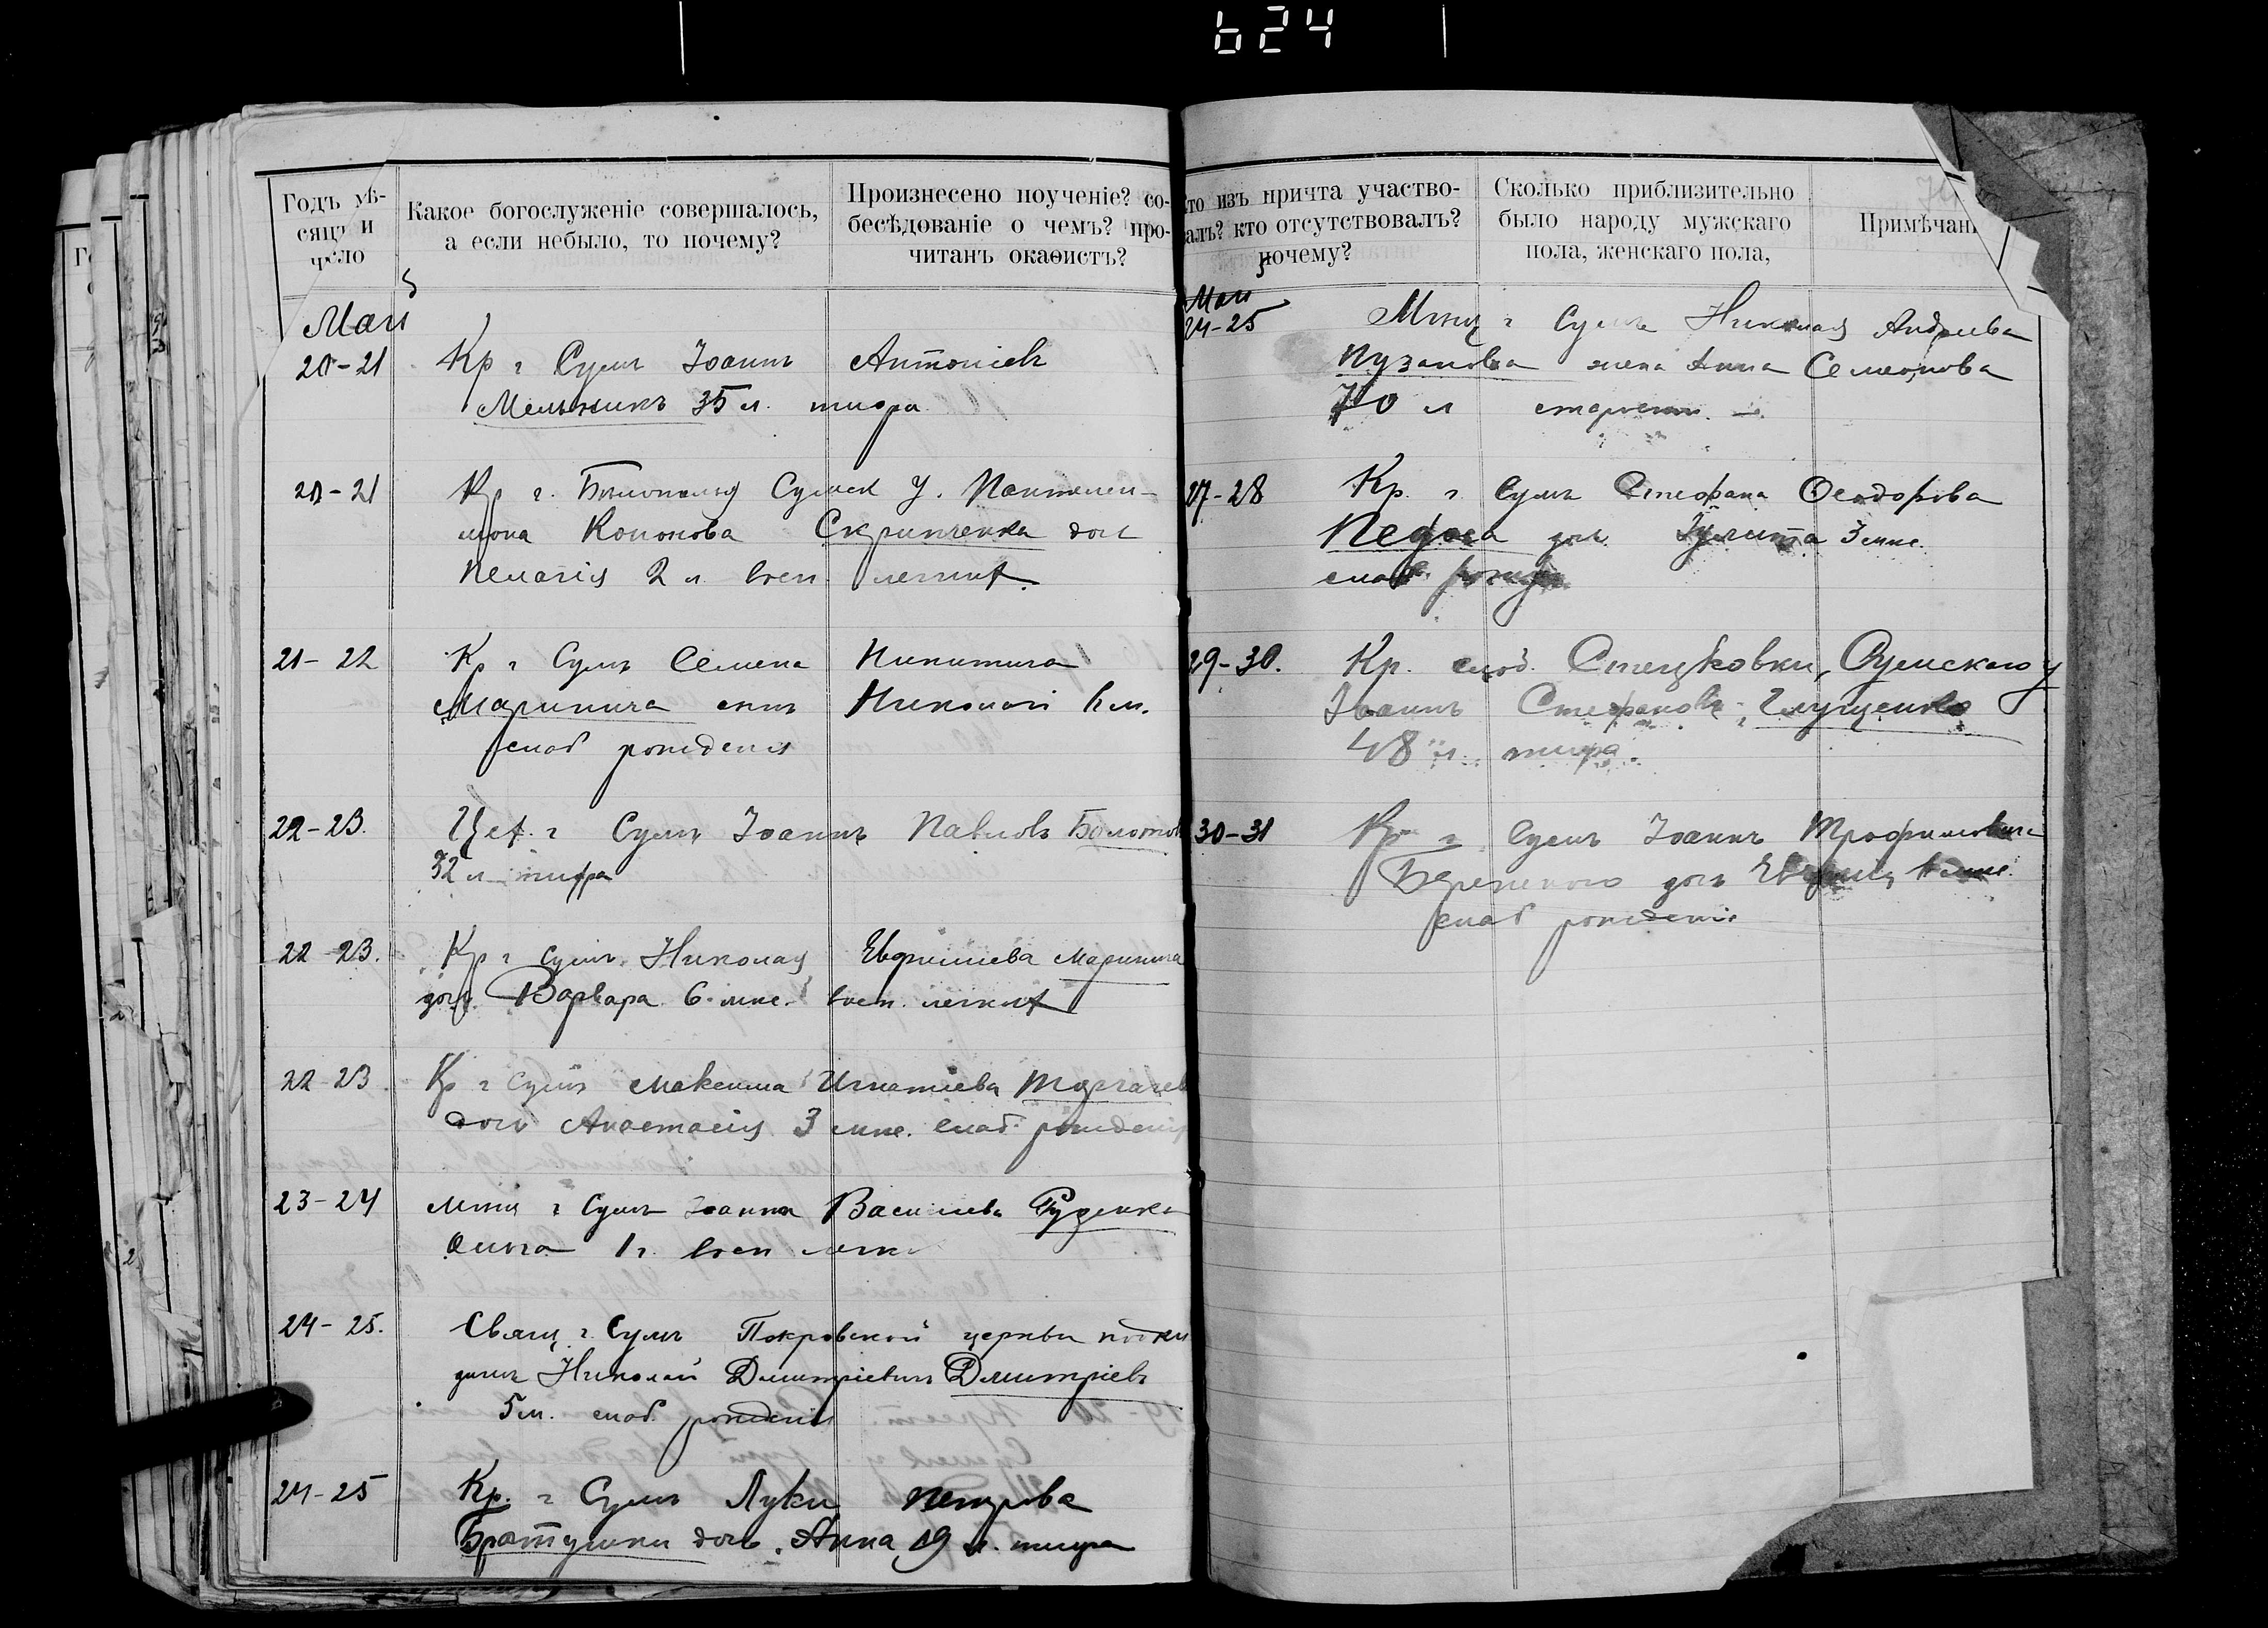 624
Годъ мѣ-
сяцъ и
число
Какое богослуженіе совершалось,
а если небыло, то почему?
Произнесено поученіе? со-
бесѣдованіе о чемъ? про-
читанъ окаѳистъ?
Май
20-21 Кр г Сумъ Іоаннъ Антоніевъ
Мельникъ 35 л. тифа
20-21 Кр г. Бѣлополья Сумск У. Пантелеи-
мона Кононова Скрипченка дочь
Пелагія 2 л. восп легких.
21-22 Кр г Сумъ Семена Никитича
Маринича сынъ Николай
слаб рожденія
22-23. Цех. г Сумъ Іоаннъ Павловъ
32 л тифа
22 23. Кр г Сумъ Николая Маринича
дочь Варвара 6 мис. восп. легких
22-23 Кр г Сумъ Максима Игнатіева
дочь Анастасія 3 мис. слаб. рожденія
23-24 Мѣщ г Сумъ Іоанна Васильева Руденка
Ольга 1 г. восп легк
24-25. Свящ г. Сумъ Покровской церкви
Николай Дмитріевичъ Дмитріевъ
5 м. слаб рожденія
24-25 Кр. г Сумъ Луки Петрова
Братушки дочь Анна 19 л. тифа
кто изъ причта участво-
валъ? кто отсутствовалъ?
почему?
Сколько приблизительно
было народу мужскаго
пола, женскаго пола,
Примѣчан
Май
24-25 Мѣщ г Сумъ Николая Андреева
Пузанова жена Анна Семеонова
70 л старости
27-28 Кр. г Сумъ Стефана Ѳеодорова
дочь 3 мис.
слаб.
29-30. Кр. слоб. Стецковки, Сумскаго у
Іоаннъ Стефановъ Глущенко
48 л. тифа.
30-31 Кр г Сумъ Іоаннъ Трофимовича
дочь
слаб рожденія